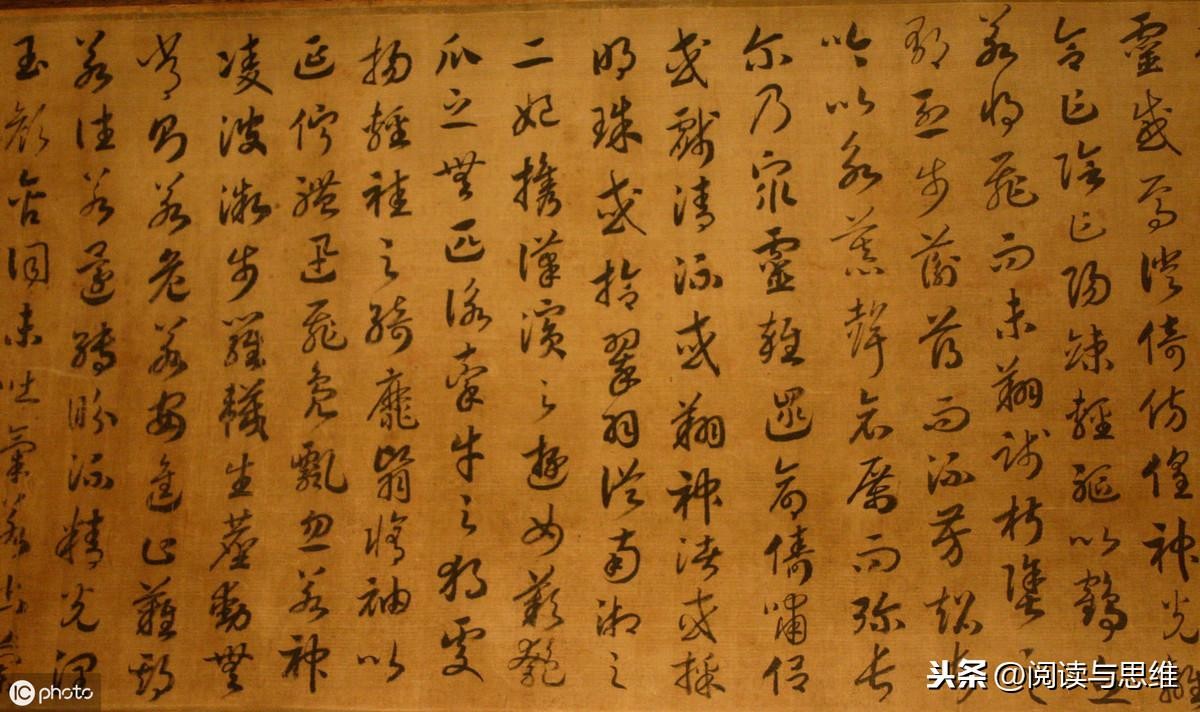 靈感焉徙倚仿偟神光離
合乍陰乍陽竦輕軀以鶴立
若將飛而未翔踐椒塗之
郁烈步蘅薄而流芳超
吟以永慕聲哀厲而彌長
尔乃眾靈雜遝命儔嘯侶
或戲清流或翔神渚或採
明珠或拾翠羽從南湘之
二妃攜漢濱之遊女歎匏
瓜之無匹詠牽牛之獨處
揚輕袿之綺靡翳脩袖以
延佇體迅飛鳧飄忽若神
凌波微步羅襪生塵動無
常則若危若安進止難期
若往若還轉眄流精光潤
玉顏含詞未吐氣若幽蘭
IC photo
头条 @阅读与思维